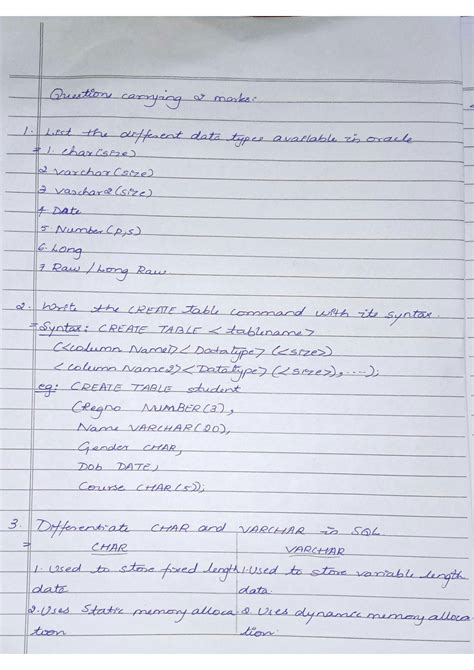 Questions carrying 2 marks:
1. List the different data types available in oracle
= 1. char(size)
2 varchar(size)
3 varchar2(size)
4 Date
5 Number(p,s)
6. Long
7 Raw / Long Raw.
2. Write the CREATE table command with its syntax.
= Syntax: CREATE TABLE <tablename>
(<column Name1> <Datatype> (<size>)
<column Name2> <Datatype> (<size>), ----);
eg: CREATE TABLE student
(Regno NUMBER(3),
Name VARCHAR(20),
Gender CHAR,
Dob DATE,
Course CHAR(5));
3. Differentiate CHAR and VARCHAR in SQL
= CHAR VARCHAR
1. Used to store fixed length 1. Used to store variable length
data data.
2. Uses Static memory alloca- 2. Uses dynamic memory alloca-
tion tion.